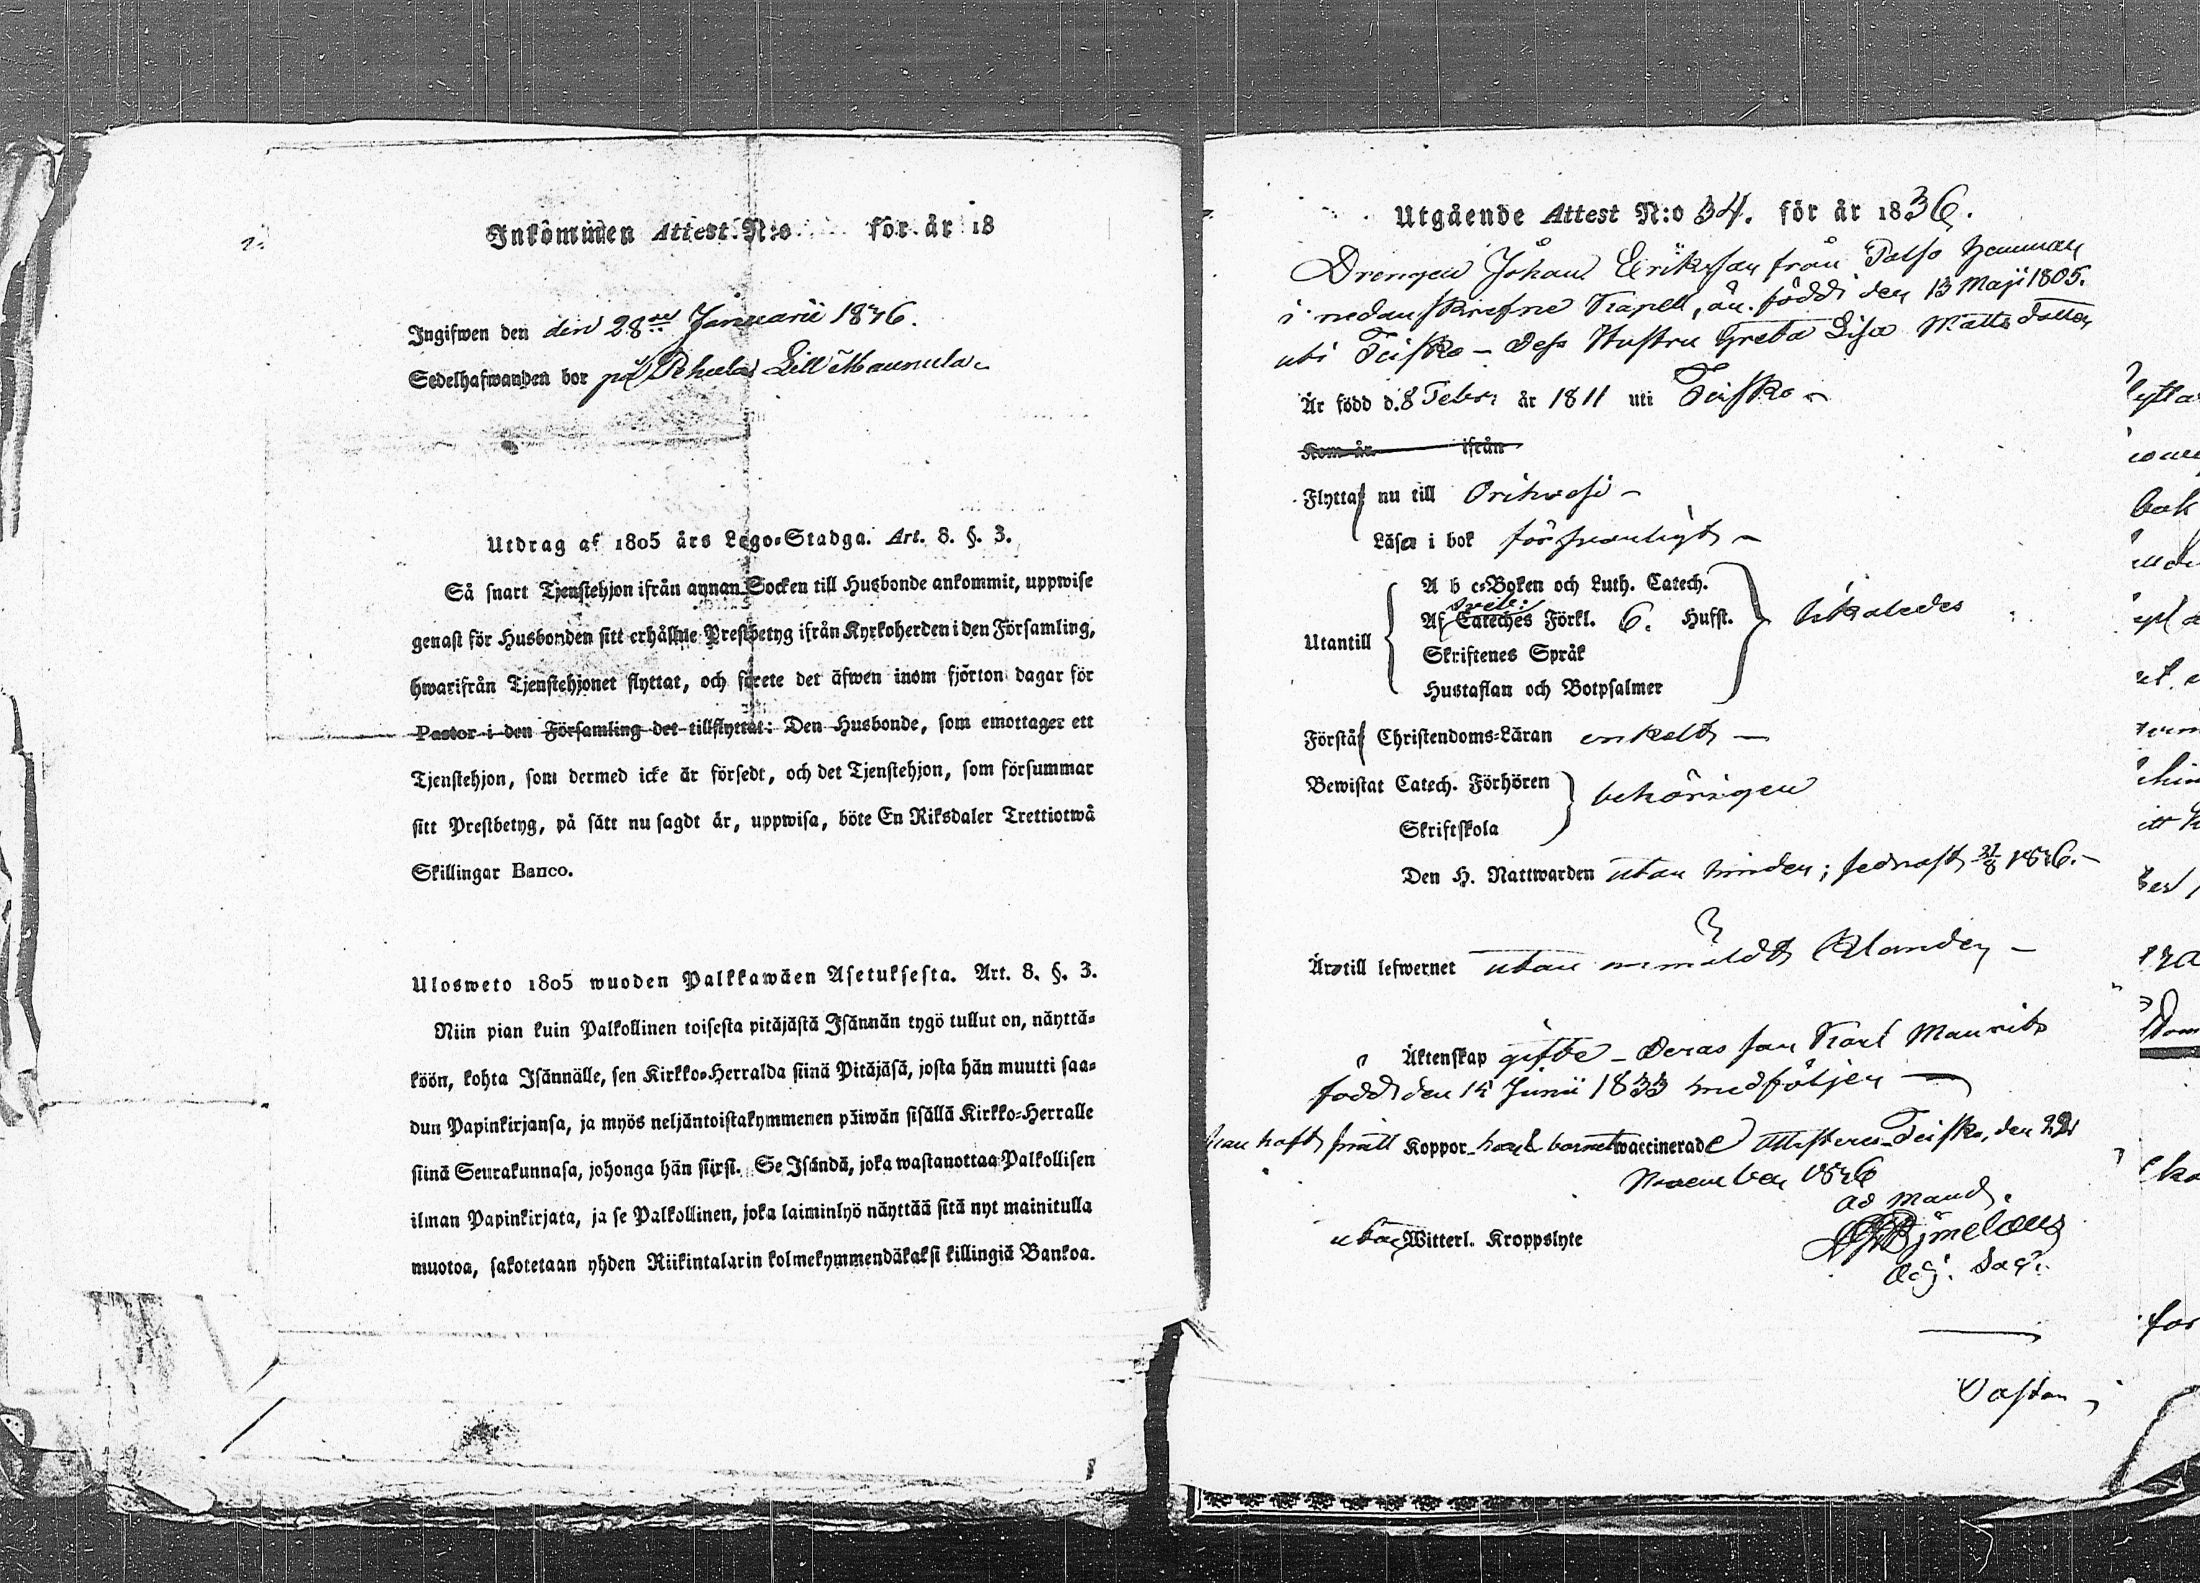 Inkommen Attest N:o för år 18
Ingifwen den den 28de Januarii 1836.
Sedelhafwanden bor på Pehula Lill Maunula
Utdrag af 1805 års Lego-Stadga. Art. 8. §. 3.
Så snart Tjenstehjon ifrån annan Socken till Husbonde ankommit, uppwise
genast för Husbonden sitt erhållne Prestbetyg ifrån Kyrkoherden i den Församling,
hwarifrån Tjenstehjonet flyttat, och förete det äfwen inom fjörton dagar för
Pastor i den Församling det tillflyttat: Den Husbonde, som emottager ett
Tjenstehjon, som dermed icke är försedt, och det Tjenstehjon, som försummar
sitt Prestbetyg, på sätt nu sagdt är, uppwisa, böte En Riksdaler Trettiotwå
Skillingar Banco.
Ulosweto 1805 wuoden Palkkawäen Asetuksesta. Art. 8. §. 3.
Niin pian kuin Palkollinen toisesta pitäjästä Isännän tygö tullut on, näyttä-
köön, kohta Isännälle, sen Kirkko-Herralda siinä Pitäjäsä, josta hän muutti saa-
dun Papinkirjansa, ja myös neljäntoistakymmenen päiwän sisällä Kirkko-Herralle
siinä Seurakunnasa, johonga hän siirsi. Se Isändä, joka wastanottaa Palkollisen
ilman Papinkirjata, ja se Palkollinen, joka laiminlyö näyttää sitä nyt mainitulla
muotoa, sakotetaan yhden Riikintalarin kolmekymmendäkaksi killingiä Bankoa.
Utgående Attest N:o 34. för år 1836.
Drengen Johan Eriksson från Palso hemman
i nedanskrefne Kapell, än född den 13 Maji 1805.
uti Teisko – Dess Hustru Greta Lisa Matts dotter
Är född d. 8 Febr: år 1811 uti Teisko –
Kom år ifrån
Flytta nu till Orihvesi –
Läsa i bok försvarligt –
A b c-Boken och Luth. Catech.
Af Sveb: Cateches Förkl. 6. Hufst.
Utantill likaledes
Skriftenes Språk
Hustaflan och Botpsalmer
Förstå Christendoms-Läran enkelt –
Bewistat Catech. Förhören
behörigen
Skriftskola
Den H. Nattwarden utan hinder; sednast 21/8 1836. –
Äro till lefwernet utan anmäldt klander –
Äktenskap gifte – Deras son Karl Maurits
född den 14 Junii 1833 medföljer –
haft smått Koppor – och barnet waccinerade Attesteras Teisko, den 22
November 1836
ad mand.
utan Witterl. Kroppslyte
Adj. Sac: